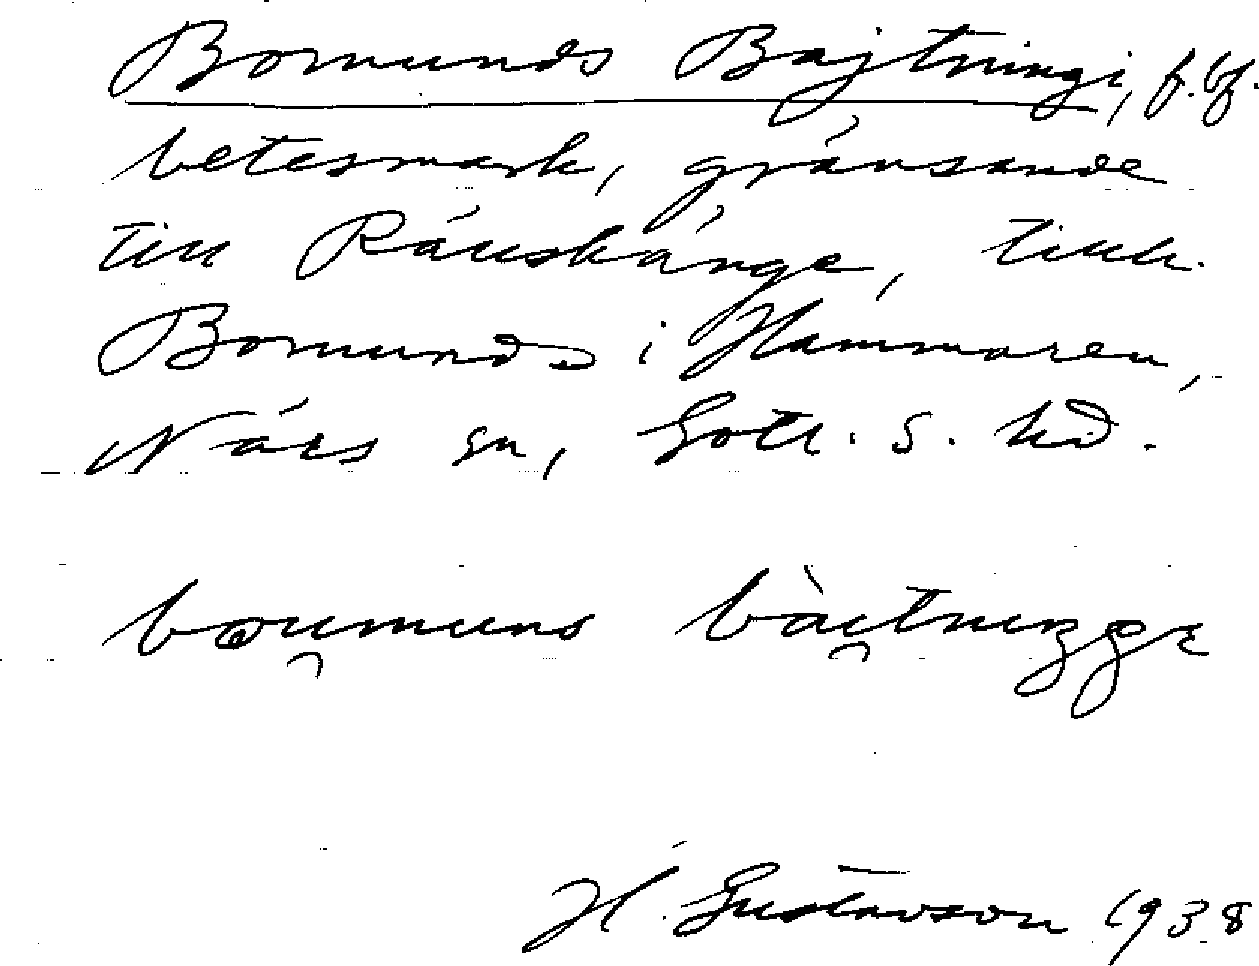 Bomunds Bajtningi, f.bf.
betesmark, gränsande
till Räuskänge, tillh.
Bomunds i Hammaren,
När sn, Gotl. S. hd.
boumuns bàitnıŋge
H. Gustavson 1938